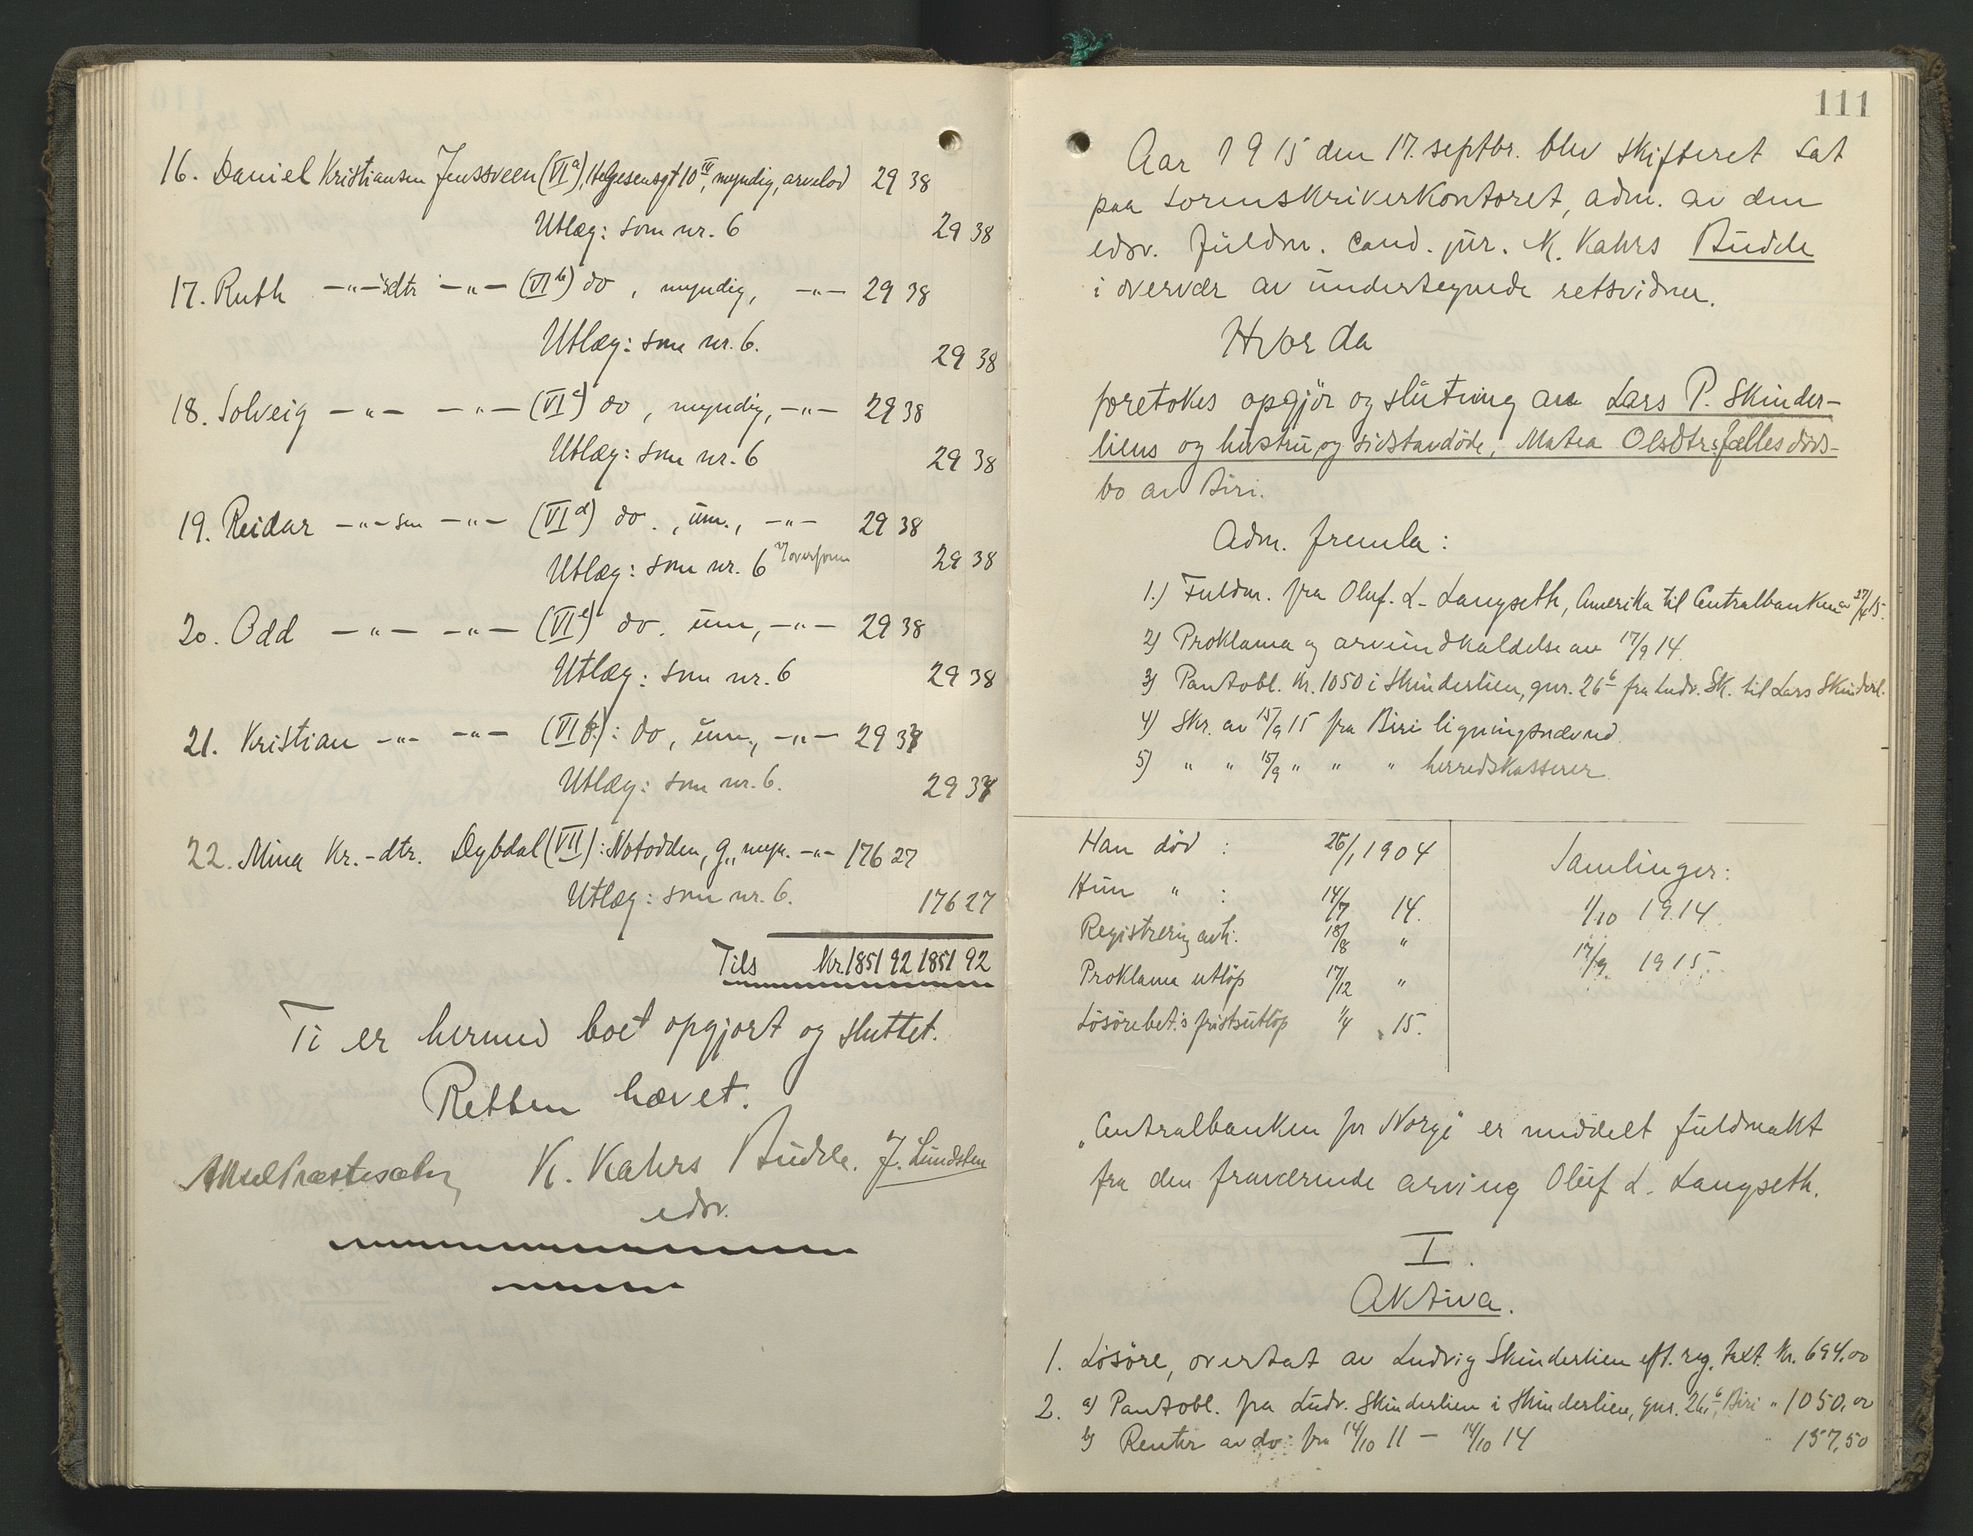 16. Daniel Kristiansen Jenssveen (VIa), Helgesensgt 10 IV, myndig, arvelod 29 38
Utlæg: som nr. 6 29 38
17. Ruth —"— sdtr —"— (VIb) do, myndig, —"— 29 38
Utlæg: som nr. 6. 29 38
18. Solveig —"— —"— (VIc) do, myndig, —"— 29 38
Utlæg: som nr. 6 29 38
19. Reidar —"— sen —"— (VId) do., um., —"— 29 38
Utlæg: som nr. 6 29 38
20. Odd —"— —"— (VIe) do. um, —"— 29 38
Utlæg: som nr. 6 29 38
21. Kristian —"— —"— (VIf): do, um., —"— 29 37
Utlæg: som nr. 6. 29 37
22. Mina Kr.-dtr. Dybdal (VII): Notodden, g., myn. —"— 176 27
Utlæg: som nr. 6. 176 27
Tils Kr. 1851 92 1851 92
Ti er hermed boet opgjort og sluttet.
Retten hævet.
Aksel Præstesæter K. Kahrs Budde. J. Lundsten
edsv.
111
Aar 1915 den 17. septbr. blev skifteret sat
paa sorenskriverkontoret, adm. av den
edsv. fuldm. cand. jur. K. Kahrs Budde
i overvær av undertegnede retsvidner.
Hvor da
foretokes opgjør og slutning av Lars P. Skinder-
liens og hustru, og sidstavdøde, Matea Olsdtrs fælles døds-
bo av Biri.
Adm. fremla:
1.) Fuldm. fra Oluf. L. Langseth, Amerika til Centralbanken av 27/4 15.
2) Proklama og arveindkaldelse av 17/9 14.
3) Pantobl. kr. 1050 i Skinderlien, gnr. 26 6 fra Ludv. Sk. til Lars Skinderl.
4) Skr. av 15/9 15 fra Biri ligningsnævnd.
5) " " 15/9 " " " herredskasserer
Han død : 26/1 1904
Hun " : 14/7 14.
Registrering avh. 18/8 "
Proklama utløp 17/12 "
Løsørebet.s fristsutløp 1/4 15.
Samlinger:
1/10 1914
17/9 1915.
"Centralbanken for Norge" er meddelt fuldmakt
fra den fraværende arving Oluf L. Langseth.
I.
Aktiva.
1. Løsøre, overtat av Ludvig Skinderlien eft. reg. taxt. kr. 694.00
2. a) Pantobl. fra Ludv. Skinderlien i Skinderlien, gnr. 26, 6, Biri " 1050.00
b) Renter av do fra 14/10 11 — 14/10 14 " 157,50